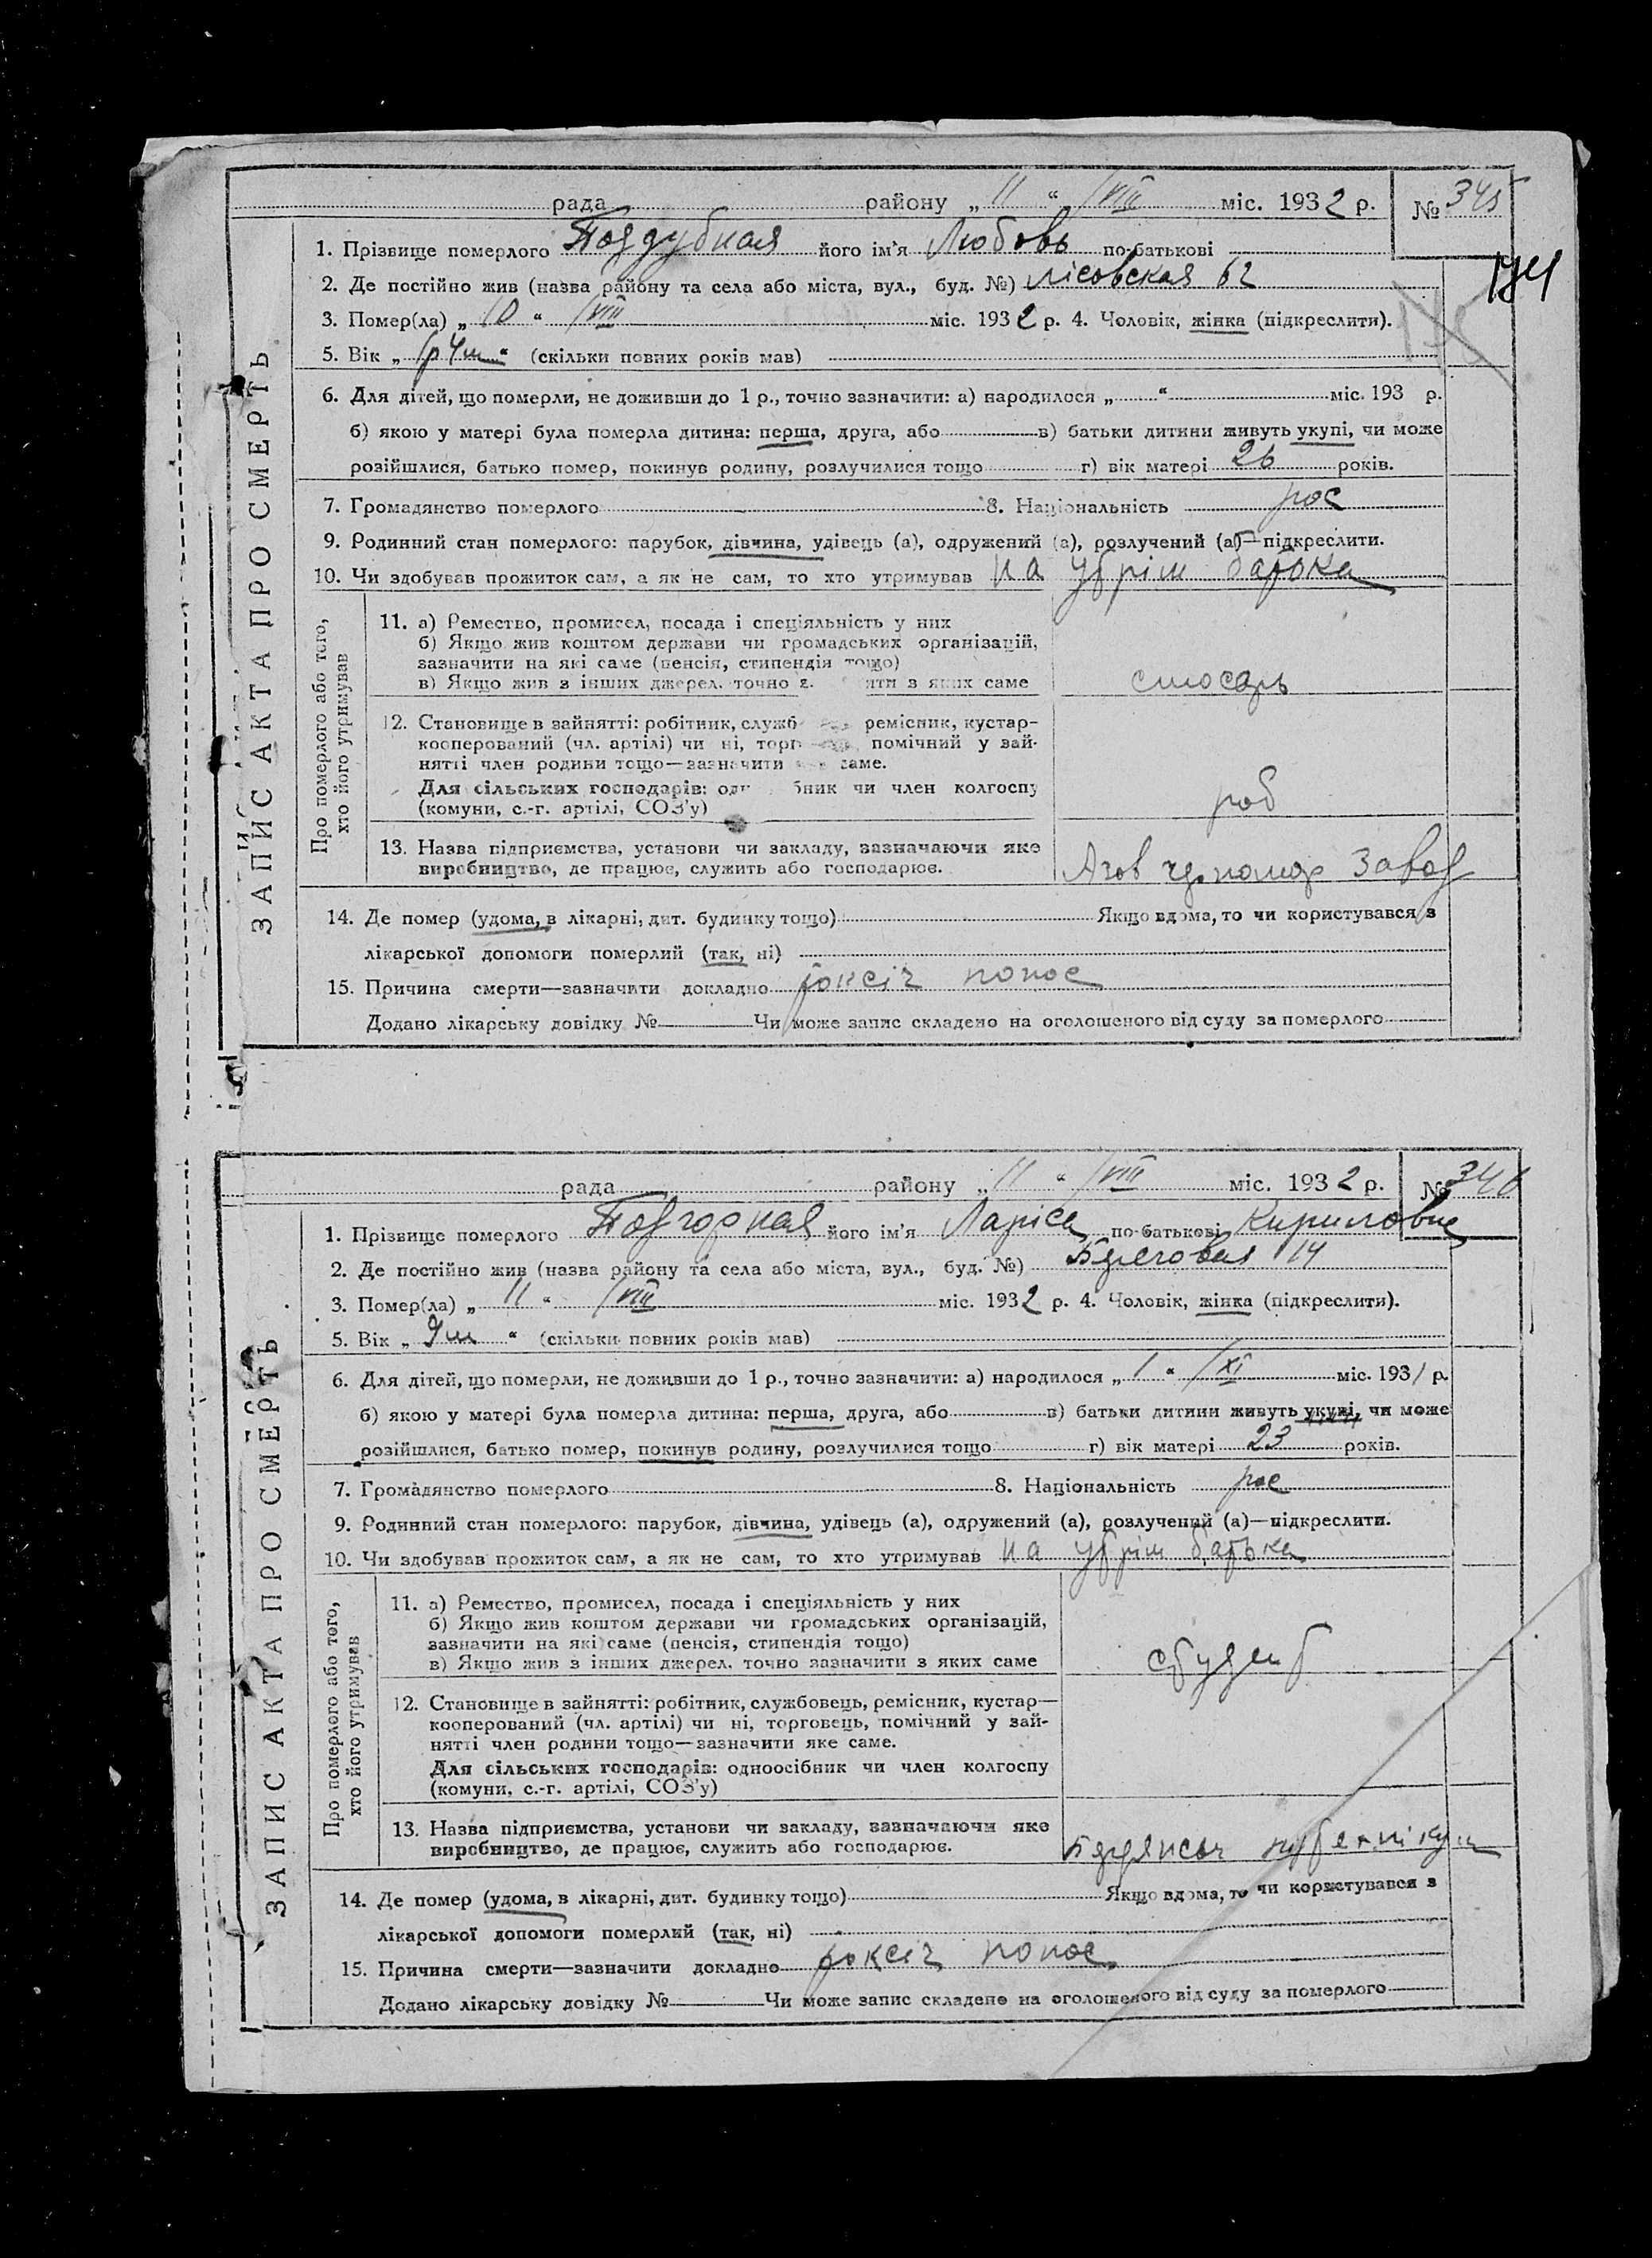 рада району „11“ /VIII міс. 1932 р. № 345
1. Прізвище померлого Поддубная його ім'я Любовь по-батькові
174
2. Де постійно жив (назва району та села або міста, вул., буд. №) Лісовская 62
3. Помер(ла) „10“ /VIII міс. 1932 р. 4. Чоловік, жінка (підкреслити).
5. Вік „1р 4м“ (скільки повних років мав)
6. Для дітей, що померли, не доживши до 1 р., точно зазначити: а) народилося „ “ міс. 193 р.
б) якою у матері була померла дитина: перша, друга, або в) батьки дитини живуть укупі, чи може
розійшлися, батько помер, покинув родину, розлучилися тощо г) вік матері 26 років.
7. Громадянство померлого 8. Національність рос
9. Родинний стан померлого: парубок, дівчина, удівець (а), одружений (а), розлучений (а)—підкреслити.
10. Чи здобував прожиток сам, а як не сам, то хто утримував на утрім батька
ЗАПИС АКТА ПРО СМЕРТЬ
Про померлого або того, хто його утримував
11. а) Ремество, промисел, посада і спеціяльність у них
б) Якщо жив коштом держави чи громадських організацій,
зазначити на які саме (пенсія, стипендія тощо)
в) Якщо жив з інших джерел, точно з яти з яких саме
слюсарь
12. Становище в зайнятті: робітник, служб ремісник, кустар-
кооперований (чл. артілі) чи ні, торг помічний у зай-
нятті член родини тощо—зазначити саме.
Для сільських господарів: од бник чи член колгоспу
(комуни, с.-г. артілі, СОЗ'у)
роб
13. Назва підприємства, установи чи закладу, зазначаючи яке
виробництво, де працює, служить або господарює.
Азов Завод
14. Де помер (удома, в лікарні, дит. будинку тощо) Якщо вдома, то чи користувався з
лікарської допомоги померлий (так, ні)
15. Причина смерти—зазначити докладно токсіч понос
Додано лікарську довідку № Чи може запис складено на оголошеного від суду за померлого
рада району „11“ /VIII міс. 1932 р. № 346
1. Прізвище померлого Подгорная його ім'я Ларіса по-батькові Кириловна
2. Де постійно жив (назва району та села або міста, вул., буд. №) Береговая 14
3. Помер(ла) „11“ /VIII міс. 1932 р. 4. Чоловік, жінка (підкреслити).
5. Вік „9м“ (скільки повних років мав)
6. Для дітей, що померли, не доживши до 1 р., точно зазначити: а) народилося „1“ /XI міс. 1931 р.
б) якою у матері була померла дитина: перша, друга, або в) батьки дитини живуть укупі, чи може
розійшлися, батько помер, покинув родину, розлучилися тощо г) вік матері 23 років.
7. Громадянство померлого 8. Національність рос
9. Родинний стан померлого: парубок, дівчина, удівець (а), одружений (а), розлучений (а)—підкреслити.
10. Чи здобував прожиток сам, а як не сам, то хто утримував на утрім батька
ЗАПИС АКТА ПРО СМЕРТЬ
Про померлого або того, хто його утримував
11. а) Ремество, промисел, посада і спеціяльність у них
б) Якщо жив коштом держави чи громадських організацій,
зазначити на які саме (пенсія, стипендія тощо)
в) Якщо жив з інших джерел, точно зазначити з яких саме
студент
12. Становище в зайнятті: робітник, службовець, ремісник, кустар—
кооперований (чл. артілі) чи ні, торговець, помічний у зай-
нятті член родини тощо—зазначити яке саме.
Для сільських господарів: одноосібник чи член колгоспу
(комуни, с.-г. артілі, СОЗ'у)
13. Назва підприємства, установи чи закладу, зазначаючи яке
виробництво, де працює, служить або господарює.
Бердянськ
14. Де помер (удома, в лікарні, дит. будинку тощо) Якщо вдома, то чи користувався з
лікарської допомоги померлий (так, ні)
15. Причина смерти—зазначити докладно токсіч понос
Додано лікарську довідку № Чи може запис складено на оголошеного від суду за померлого